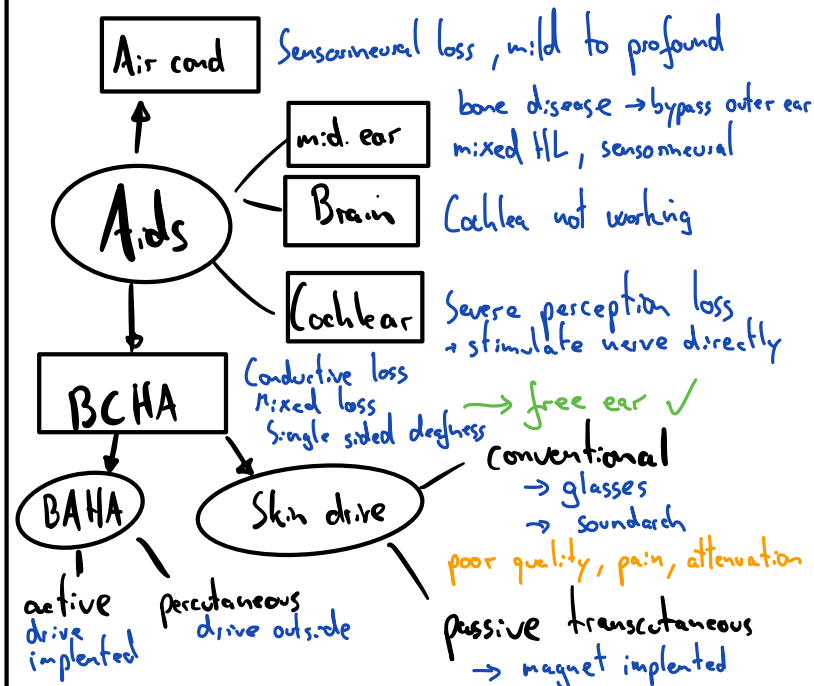 Air cond
Sensorineural loss, mild to profound
mid. ear
bone disease → bypass outer ear
mixed HL, sensorineural
Aids
Brain
Cochlea not working
Cochlear
Severe perception loss
→ stimulate nerve directly
BCHA
Conductive loss
Mixed loss
Single sided deafness
→ free ear ✓
BAHA
Skin drive
conventional
→ glasses
→ soundarch
poor quality, pain, attenuation
active
drive
implented
percutaneous
drive outside
passive transcutaneous
→ magnet implented